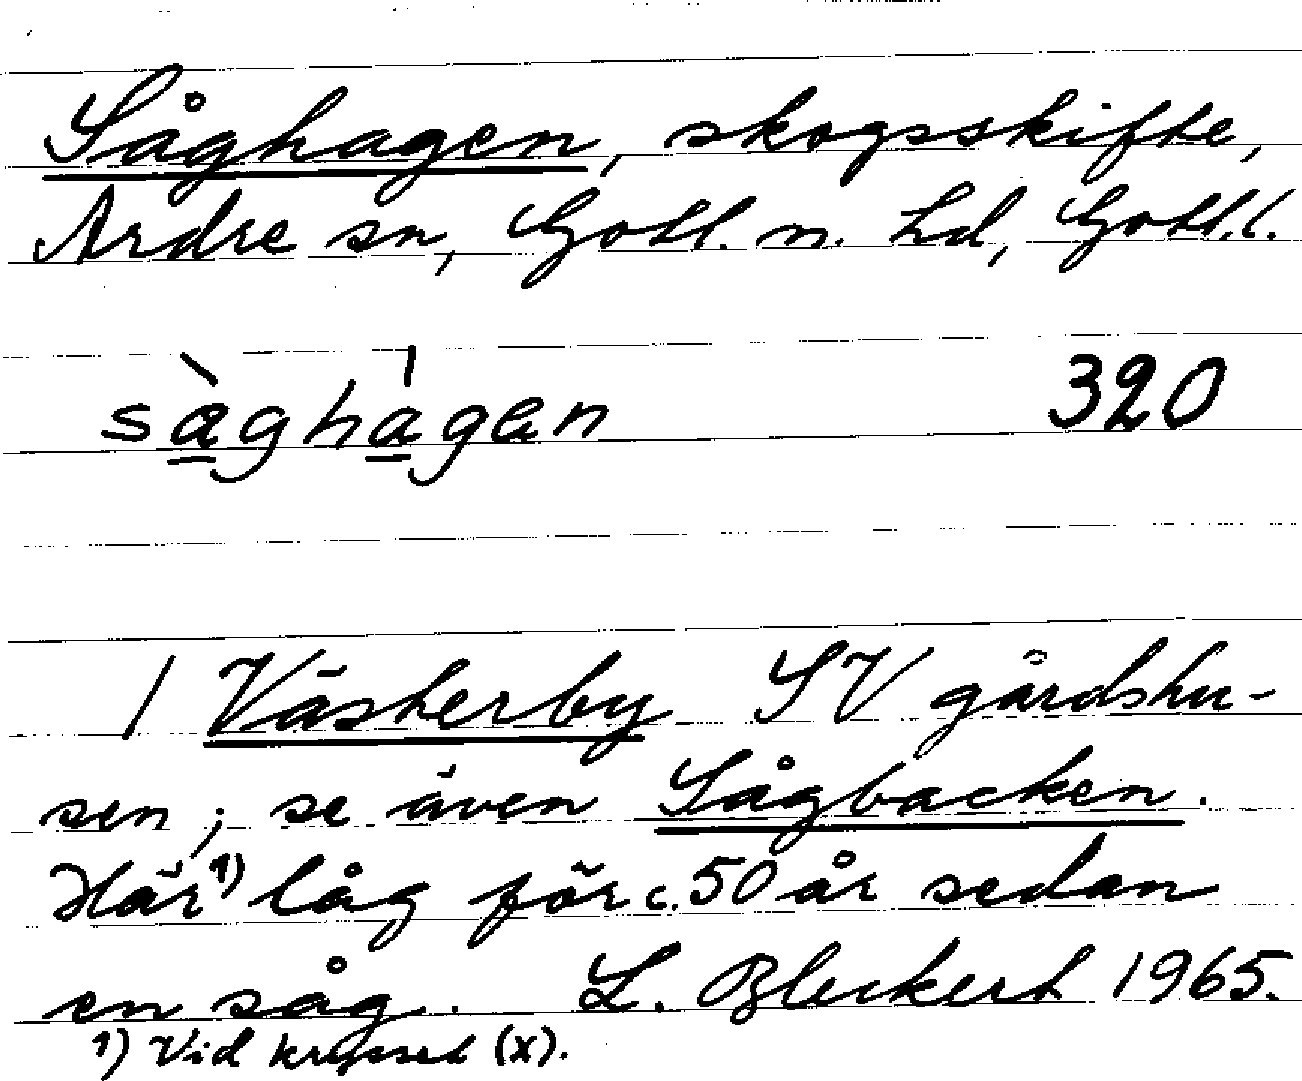 Såghagen, skogsskifte,
Ardre sn, Gotl. n. hd, Gotl.l.
sàghágen 320
/ Västerby SV gårdshu-
sen; se även Sågbacken.
Här¹⁾ låg för c. 50 år sedan
en såg. L. Bleckert 1965.
1) Vid krysset (x).